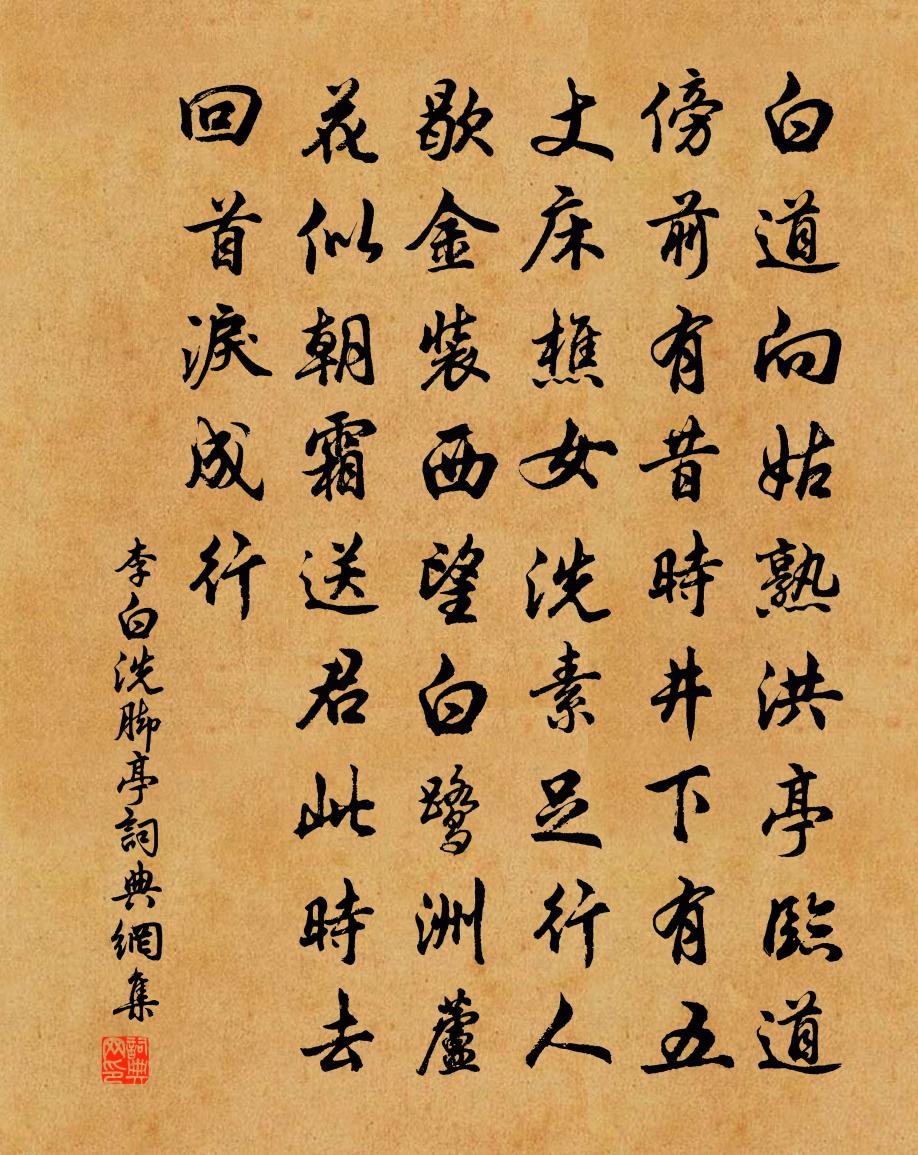 白道向姑熟洪亭臨道
傍前有昔時井下有五
丈床樵女洗素足行人
歇金裝西望白鷺洲蘆
花似朝霜送君此時去
回首淚成行
李白洗脚亭詞典網集
詞典网印